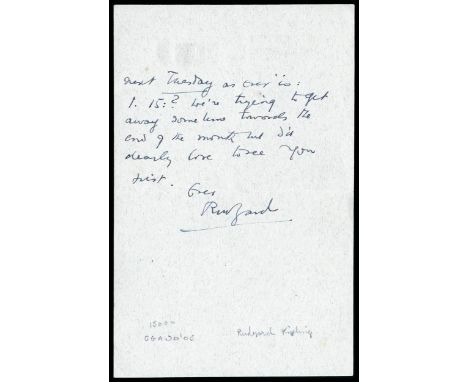 next Tuesday as ever is:
1.15:? We're trying to get
away sometime towards the
end of the month but I'd
dearly love to see you
first.
Ever
Rudyard
1500-
Rudyard Kipling